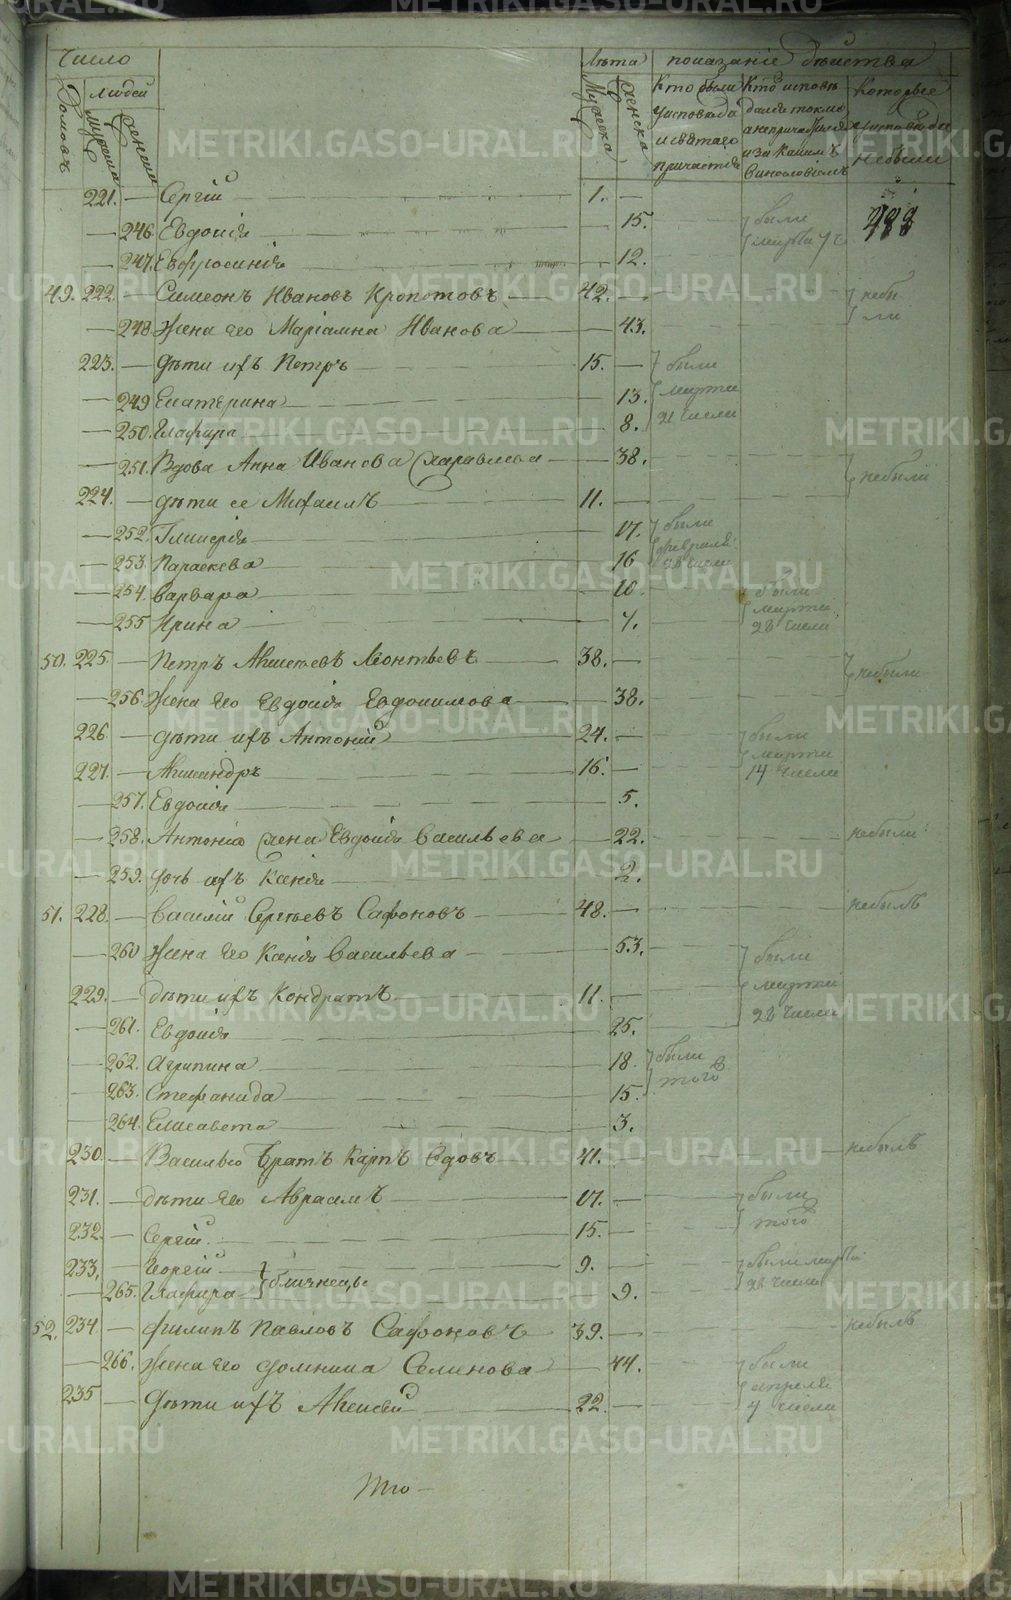 Число
Людей
Лѣта
показаніе дѣйства
Домовъ
мужска
женска
Мужеска
женска
Кто были
у исповѣда
и святаго
причастія
Кто исповѣ
дался токмо
а не причастился
и за какимъ
виновловіемъ
Которые
у исповѣди
не были
221. Сергій 1.
488
246. Евдокія 15. были
марта 7 ч
247. Евфросинія 12.
49. 222. Симеонъ Ивановъ Кропотовъ 42. небы
ли
248. Жена его Маріамна Иванова 43.
223. дѣти ихъ Петръ 15. были
249 Екатерина 13. марта
250. Глафира 8. 21 числа
251. Вдова Анна Иванова 38. небыли
224. дѣти ее Михаилъ 11.
252. Гликерія 17. были
253. Параскева 16 февраля
числа
254. Варвара 10. были
255 Ирина 7. марта
28 числа
50. 225. Петръ Алексѣевъ Леонтьевъ 38. небыли
256. Жена его Евдокія Евдокимова 38.
226. дѣти ихъ Антоній 24. были
227. Александръ 16. марта
14 числа
257. Евдокія 5.
258. Антонія жена Евдокія Васильева 22. небыли
259. дочь ихъ Ксенія 2.
51. 228. Василій Сергѣевъ Сафоновъ 48. небылъ
260 Жена его Ксенія Васильева 53. были
229. дѣти ихъ Кондратъ 11. марта
28 числа
261. Евдокія 25.
262. Агрипина 18. были
263. Стефанида 15. того
264. Елисавета 3.
230. Василью братъ Карпъ Вдовъ 41. небылъ
231. дѣти его Авраамъ 17. были
232. Сергій 15. того
233. Георгій 9. были марта
близнецы
265. Глафира 9. 28 числа
52. 234. Филипъ Павловъ Сафоновъ 39. небылъ
266. Жена его Домника Семинова 44. были
апреля
235 Дѣти ихъ Алексѣй 22. 4 числа
METRIKI.GASO-URAL.RU